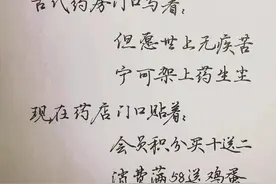 古代药房门口写着：
但愿世上无疾苦
宁可架上药生尘
现在药店门口贴着：
会员积分买十送二
消费满58送鸡蛋